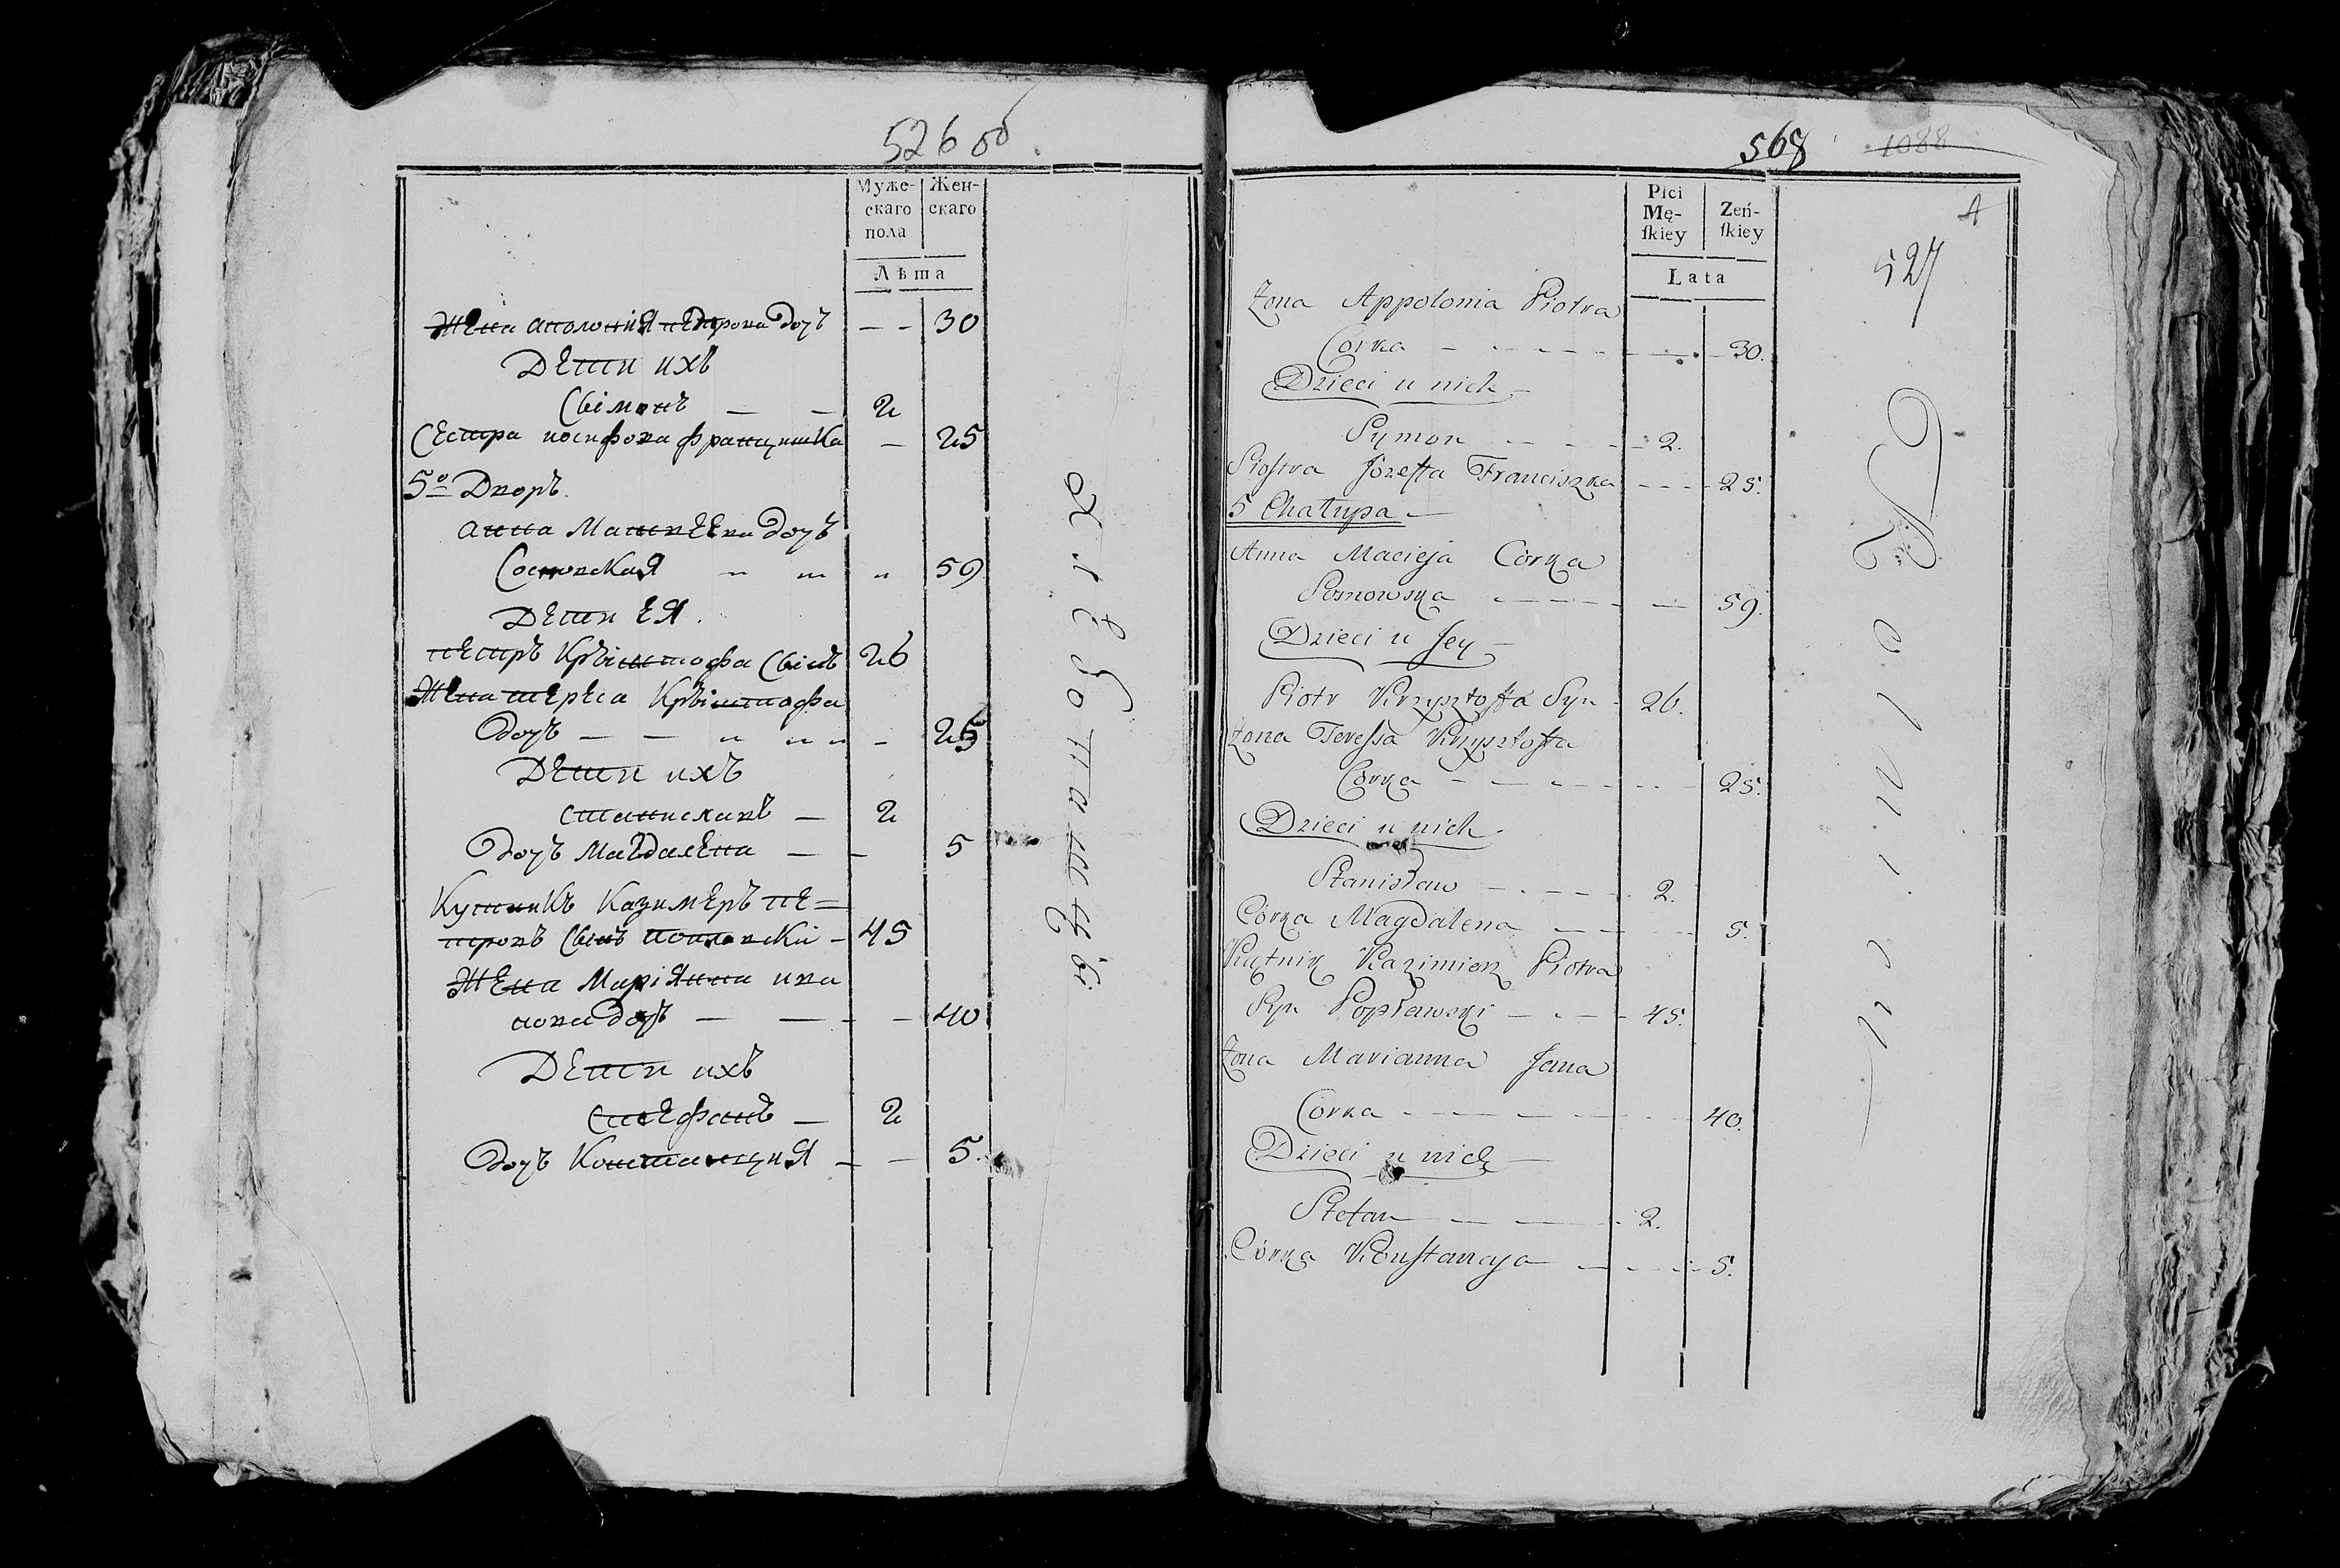 526 об
Муже-
скаго
пола
Жен-
скаго
Лѣта
Жена аполонія петрова дочъ — — 30
Дети ихъ
Сымонъ — — 2
Сестра иосифова францишка — 25
5о Дворъ.
анна Матвеева дочъ
Сосновская 59
Дети ея.
петръ Крыштофа Сынъ 26
Жена тереса Крыштофа
дочъ — — 25
Дети ихъ
станиславъ — 2
дочъ Магдалена — — 5
Кутникъ Казимеръ пе=
тровъ Сынъ поплавскі — 45
Жена Маріянна ива
нова дочъ — — — — 40
Дети ихъ
стефанъ — 2
дочъ Констанция — — 5.
568 1088
Płci
Mę-
ſkiey
Żeń-
ſkiey
Lata
527
Zona Appolonia Piotra
Corka — 30.
Dzieci u nich —
Symon 2.
Siostra Józeffa Franciszka 25.
5 Chałupa —
Anna Macieja Córka
Sosnowska 59.
Dzieci u Jey —
Piotr Krzysztoffa Syn 26.
Zona Teressa Krzysztoffa
Córka 25.
Dzieci u nich.
Stanisław 2.
Córka Magdalena 5.
Kutnik Kazimierz Piotra
Syn Popławski 45.
Zona Marianna Jana
Corka 40.
Dzieci u nich —
Stefan 2.
Córka Konstancya 5.